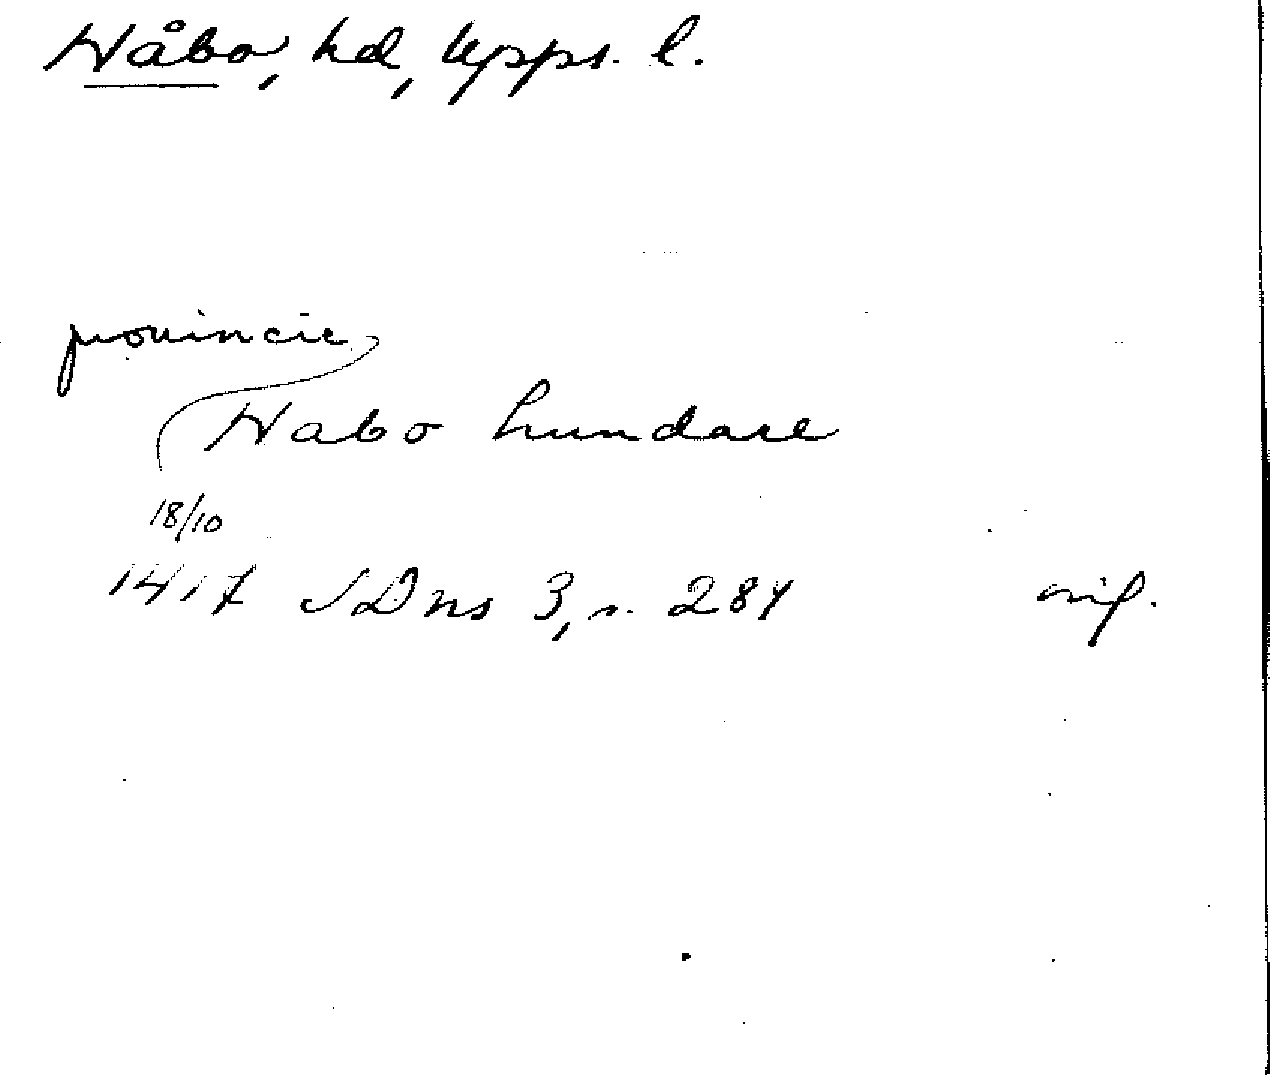 Håbo, hd, Upps. l.
prouincie
Habo hundare
18/10
1417 SDns 3, s. 284
orig.